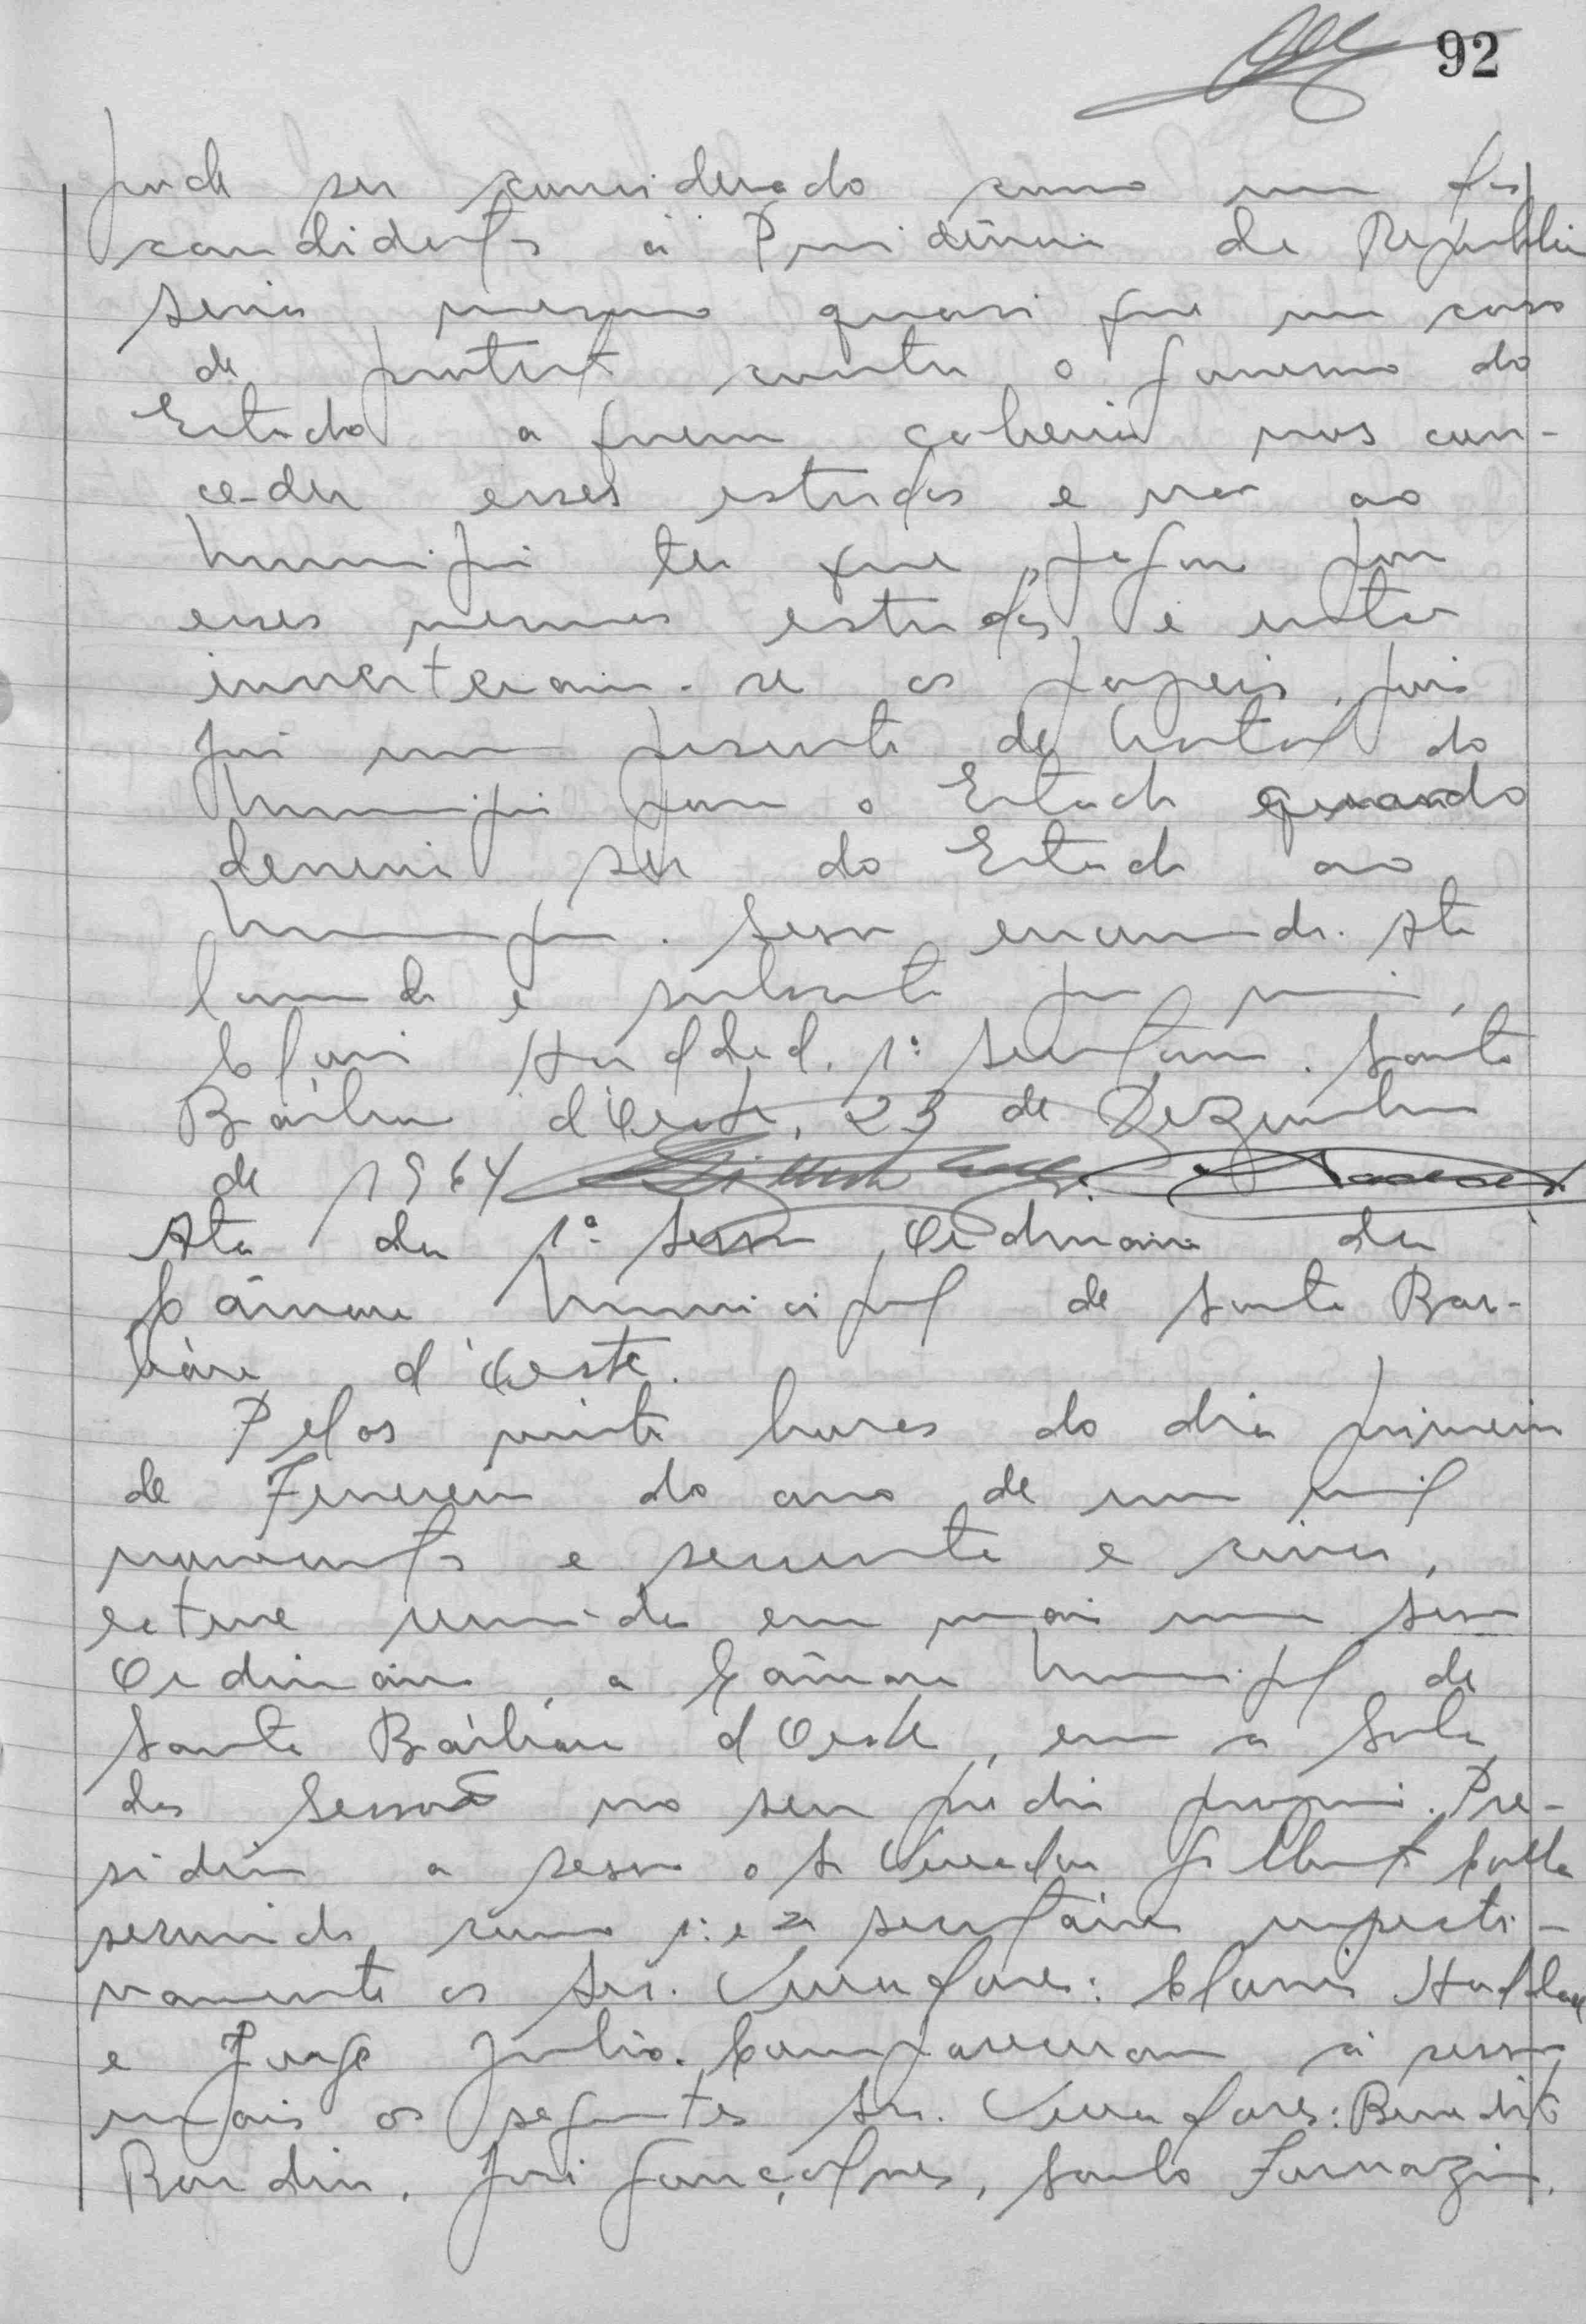 92
pode ser considerado como um dos
candidatos à Presidência da República
seria mesmo quasi que um caso
de protesto contra o governo do
Estado a quem caberia nos con-
ce-der esses estudos e não ao
Municipio ter que pagar por
esses mesmos estudos, e
inverteram-se os papeis, pois
foi um presente de Natal do
Municipio para o Estado quando
deveria ser do Estado ao
Municipio. Sessão encerrada. Ata
lavrada e subscrita por mim,
Clovis Haddad. 1º Secretario. Santa
Bárbara d'Oeste, 23 de Dezembro
de 1964
Ata da 1ª Sessão Ordinaria da
Câmara Municipal de Santa Bar-
bára d'Oeste.
Pelas vinte horas do dia primeiro
de Fevereiro do ano de um mil
novecentos e sessenta e cinco,
esteve reunida em mais uma Sessão
Ordinária, a Câmara Municipal de
Santa Bárbara d'Oeste, em a Sala
das Sessões no seu prédio proprio. Pre-
sidiu a sessão o Sr Vereador Gilberto
servindo como 1º e 2º secretários respecti-
vamente os Srs. Vereadores: Clovis Haddad
e Jorge Julio. Compareceram à sessão
mais os seguintes Srs. Vereadores: Benedito
Rondin, José Gonçalves, Santo Furnazin,